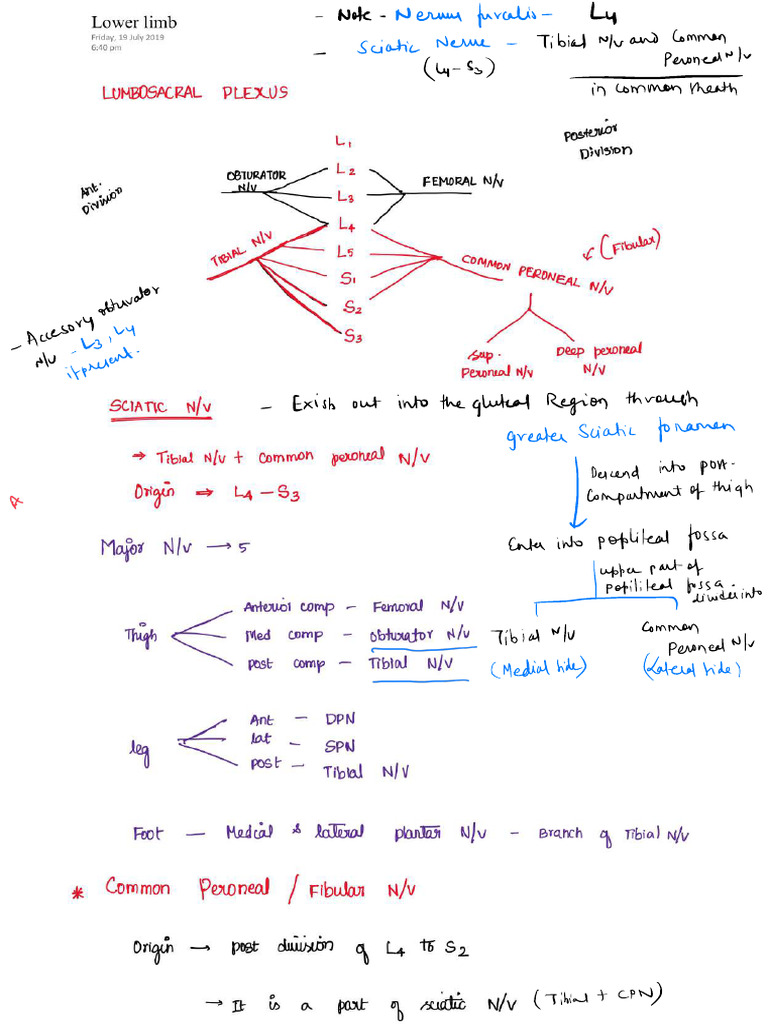 Lower limb
Friday, 19 July 2019
6:40 pm
- Note - Nervus furcalis - L4
- Sciatic Nerve - Tibial N/V and Common
Peroneal N/V
(L4-S3)
in common sheath
LUMBOSACRAL PLEXUS
Posterior
Division
Ant.
Division
L1
L2
L3
L4
L5
S1
S2
S3
OBTURATOR
N/V
FEMORAL N/V
TIBIAL N/V
COMMON PERONEAL N/V
(Fibular)
Sup.
Peroneal N/V
Deep peroneal
N/V
- Accesory obturator
N/V - L3, L4
if present.
SCIATIC N/V - Exists out into the gluteal Region through
greater Sciatic foramen
→ Tibial N/V + Common peroneal N/V
Origin ⇒ L4 - S3
Descend into post.
Compartment of thigh
Major N/V → 5
Enter into popliteal fossa
upper part of
popliteal fossa
divides into
Thigh
Anterior comp - Femoral N/V
Med comp - obturator N/V
post comp - Tibial N/V
Tibial N/V
(Medial side)
Common
Peroneal N/V
(Lateral side)
leg
Ant - DPN
lat - SPN
post - Tibial N/V
Foot - Medial & lateral plantar N/V - Branch of Tibial N/V
* Common Peroneal / Fibular N/V
Origin → post division of L4 to S2
→ It is a part of sciatic N/V (Tibial + CPN)